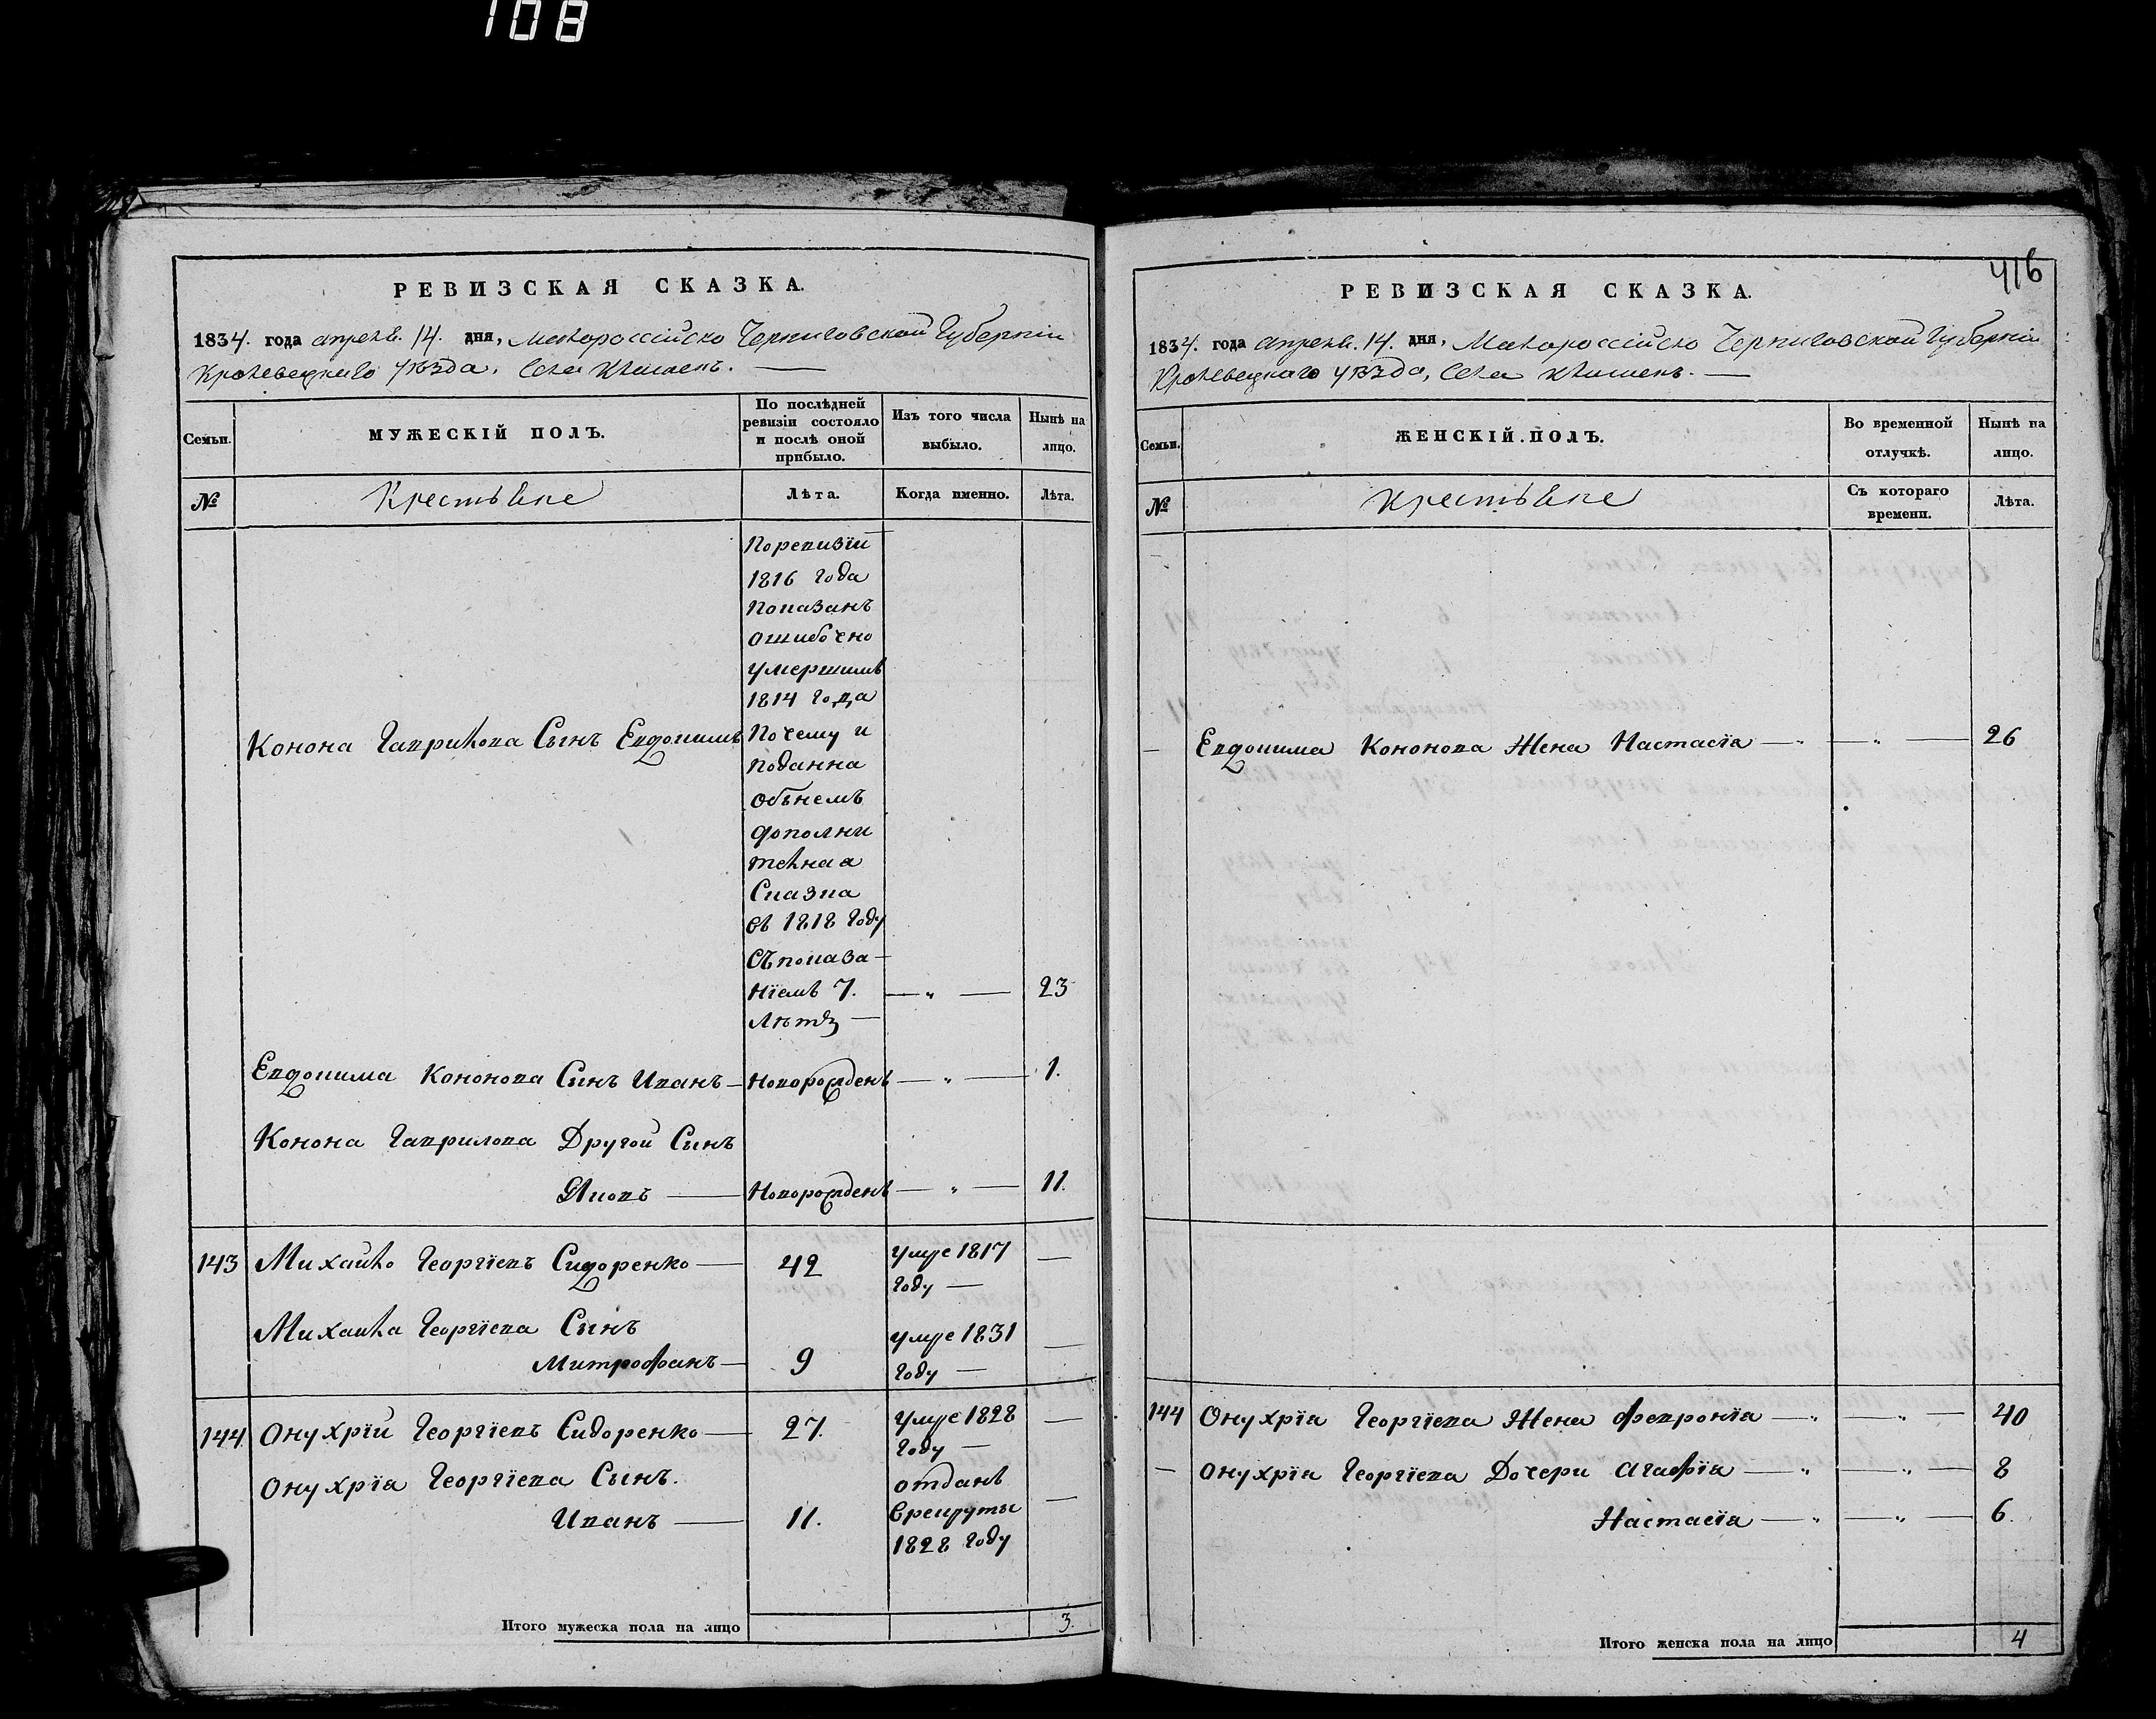 108
РЕВИЗСКАЯ СКАЗКА.
1834. года апреля. 14. дня, Малороссійско Черниговской Губерніи
Кролевецкаго уѣзда, Села Клишекъ.
Семьи.
МУЖЕСКІЙ ПОЛЪ.
По послѣдней
ревизіи состояло
и послѣ оной
прибыло.
Изъ того числа
выбыло.
Нынѣ на
лицо.
№
Крестьяне
Лѣта.
Когда именно.
Лѣта.
Поревизіи
1816 года
Показанъ
ошибочно
умершимъ
1814 года
Почему и
Поданна
объ немъ
дополни
телная
Сказка
въ 1818 году
Съ показа
ніемъ 7.
Лѣтъ
Конона Гаврилова Сынъ Евдокимъ
23
Евдокима Кононова Сынъ Иванъ Новорожденъ 1.
Конона Гаврилова Другой Сынъ
Яковъ Новорожденъ 11.
143 Михайло Георгіевъ Сидоренко 42 умре 1817
году
Михайла Георгіева Сынъ
Митрофанъ 9 умре 1831
году
144 Онухрій Георгіевъ Сидоренко 27. умре 1828
году
Онухрія Георгіева Сынъ.
Иванъ 11. отданъ
Врекруты
1828 году
Итого мужеска пола на лицо 3.
416
РЕВИЗСКАЯ СКАЗКА.
1834. года апреля. 14. дня, Малороссійско Черниговской Губерніи
Кролевецкаго уѣзда, Села Клишекъ.
Семьи.
ЖЕНСКІЙ ПОЛЪ.
Во временной
отлучкѣ.
Нынѣ на
лицо.
№
Крестьяне
Съ котораго
времени.
Лѣта.
Евдокима Кононова Жена Настасія 26
144 Онухрія Георгіева Жена Февронія 40
Онухрія Георгіева Дочери Агафія 8
Настасія 6.
Итого женска пола на лицо 4